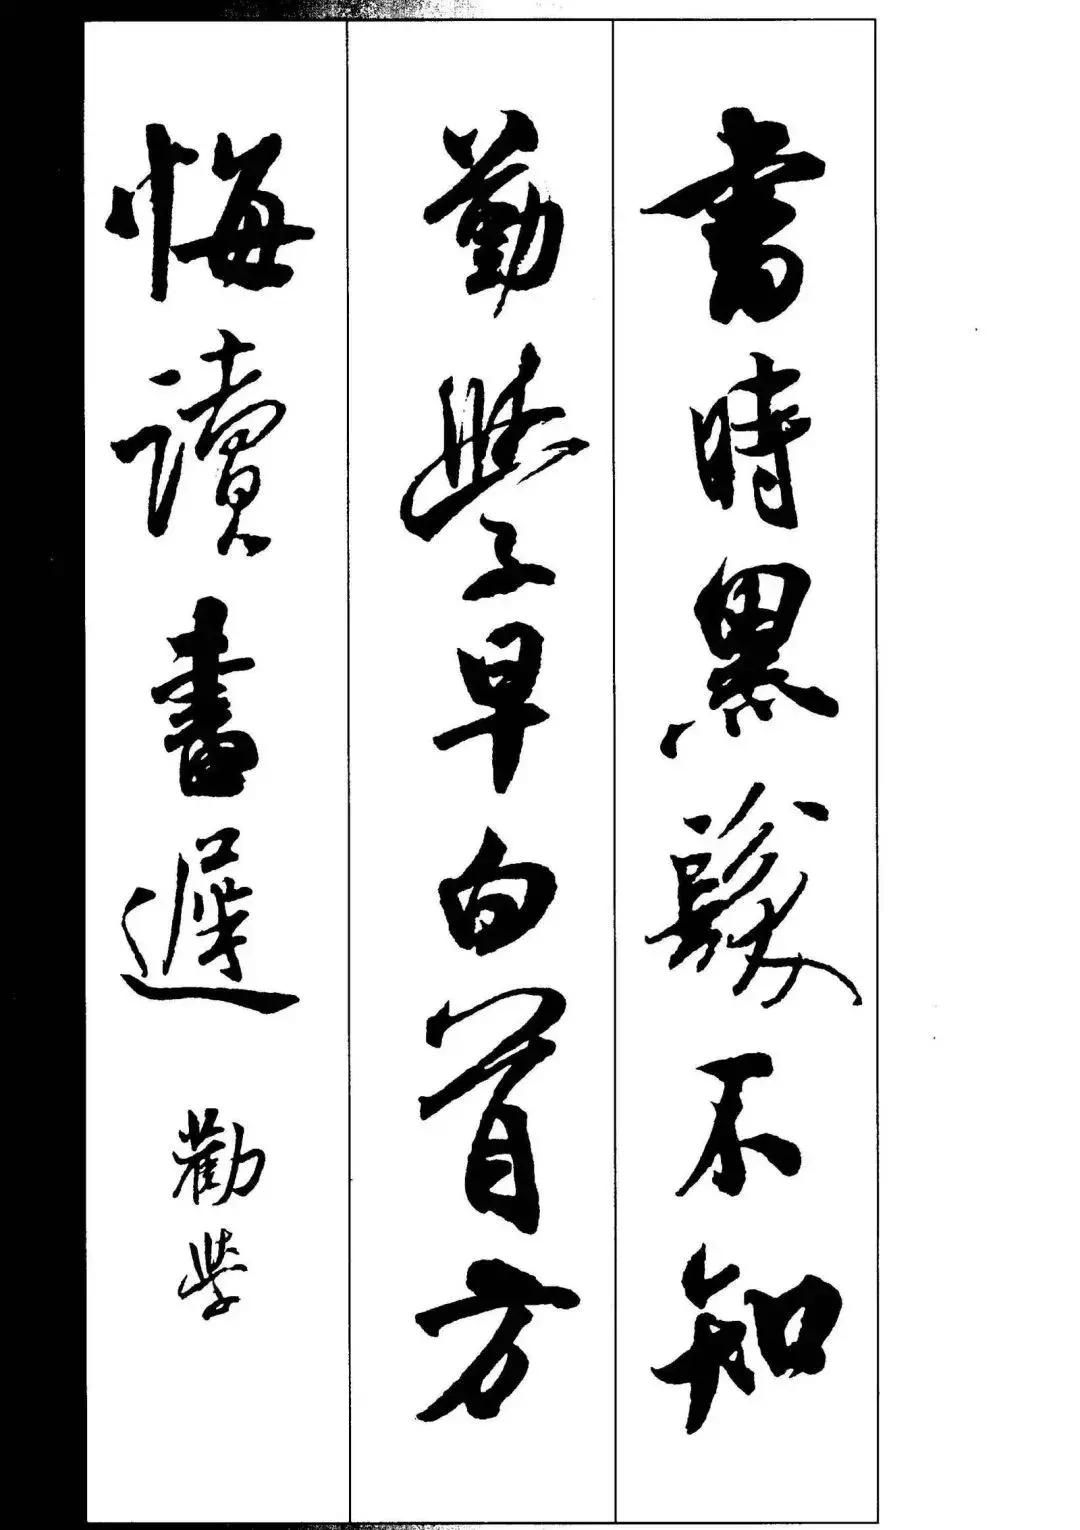 書時黑髮不知
勤學早白首方
悔讀書遲
勸學